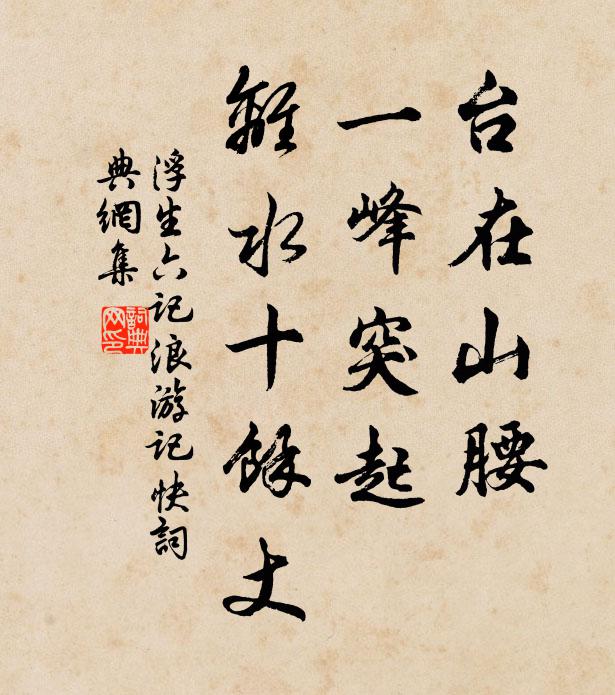 台在山腰
一峰突起
離水十餘丈
浮生六记浪游记快詞
典網集
詞典
网印